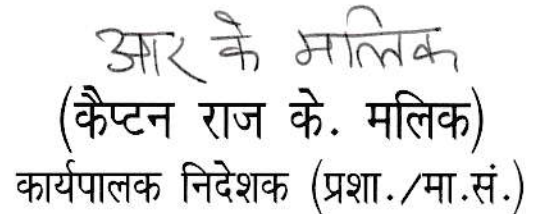 आर के मलिक
(कैप्टन राज के. मलिक)
कार्यपालक निदेशक (प्रशा./मा.सं.)